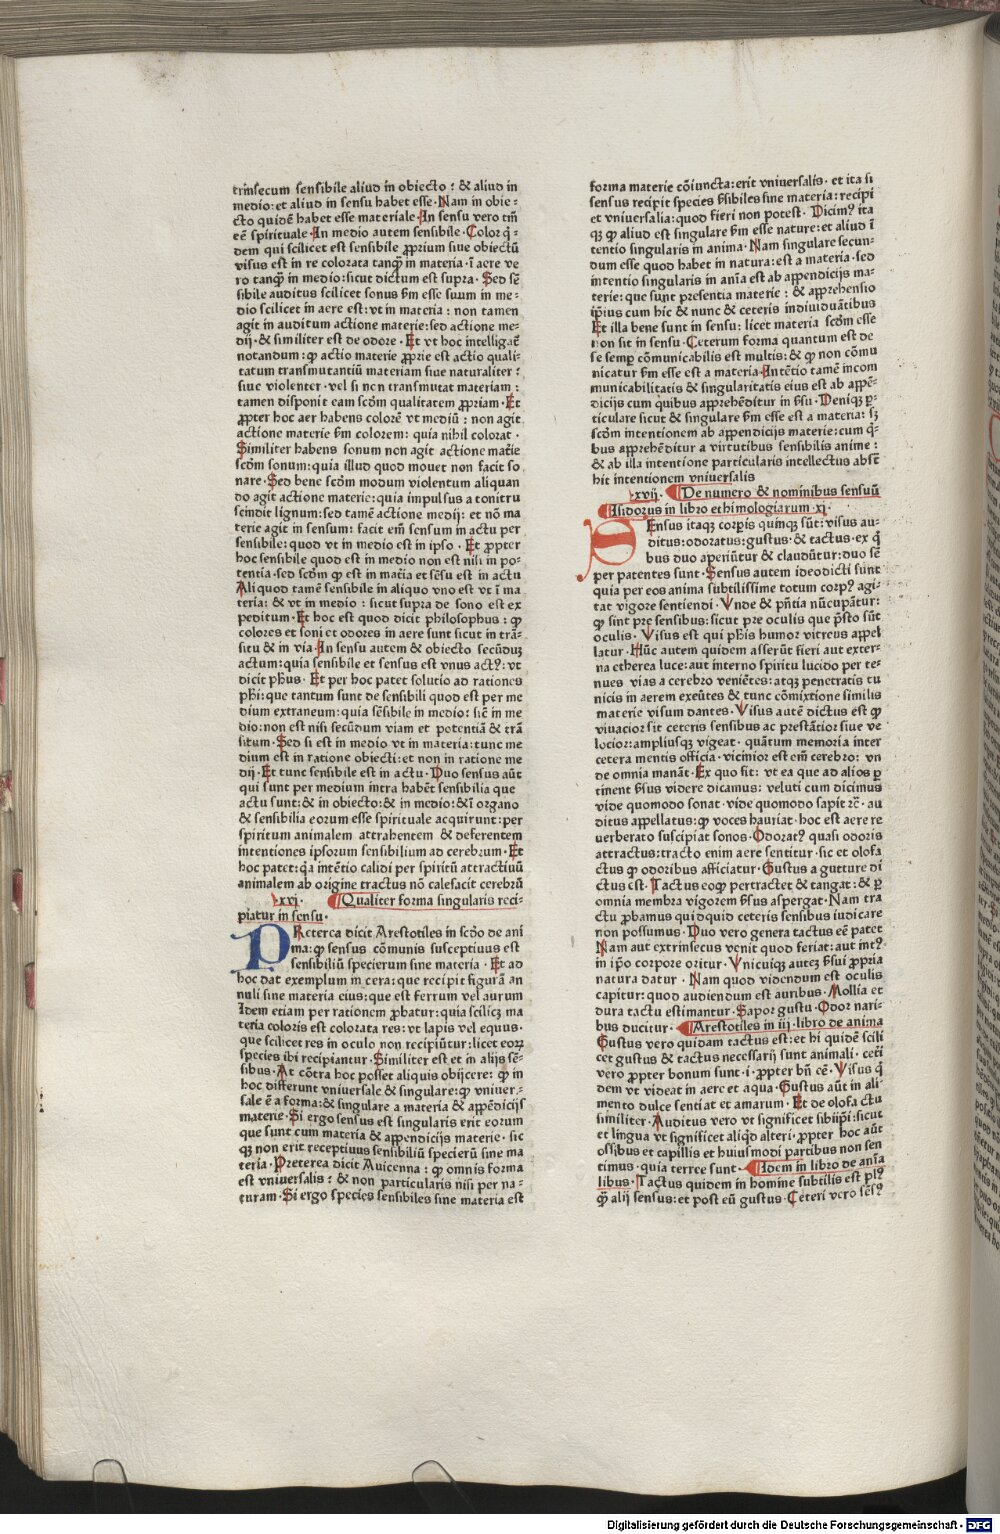 trinsecum sensibile aliud in obiecto : & aliud in
medio: et aliud in sensu habet esse. Nam in obie-
cto quidē habet esse materiale. In sensu vero tm̄
eē spirituale. In medio autem sensibile. Color q̄-
dem qui scilicet est sensibile ꝓprium siue obiectū
visus est in re colorata tanqͫ in materia. ī aere ve
ro tanqͫ in medio: sicut dictum est supra. Sed sē
sibile auditus scilicet sonus ẜm esse suum in me-
dio scilicet in aere est: vt in materia : non tamen
agit in auditum actione materie: sed actione me-
dij. & similiter est de odore. Et vt hoc intelligat̄
notandum: ꝙ actio materie ꝓprie est actio quali-
tatum transmutantiū materiam siue naturaliter :
siue violenter. vel si non transmutat materiam :
tamen disponit eam scd̄m qualitatem ꝓpriam. Et
ꝓpter hoc aer habens colorē vt mediū : non agit
actione materie ẜm colorem: quia nihil colorat.
Similiter habens sonum non agit actione mat̄ie
scd̄m sonum: quia illud quod mouet non facit so
nare. Sed bene scd̄m modum violentum aliquan
do agit actione materie: quia impulsus a tonitru
scindit lignum: sed tamē actione medij: et nō ma
terie agit in sensum: facit em̄ sensum in actu per
sensibile: quod vt in medio est in ipso. Et ꝓpter
hoc sensibile quod est in medio non est nisi in po-
tentia. sed scd̄m ꝙ est in mat̄ia et sēsu est in actu
Aliquod tamē sensibile in aliquo vno est vt ī ma
teria: & vt in medio : sicut supra de sono est ex
peditum. Et hoc est quod dicit philosophus : ꝙ
colores et soni et odores in aere sunt sicut in trā-
situ & in via. In sensu autem & obiecto secūduꝫ
actum: quia sensibile et sensus est vnus actꝰ: vt
dicit ph̄us. Et per hoc patet solutio ad rationes
ph̄i: que tantum sunt de sensibili quod est per me
dium extraneum: quia sēsibile in medio: sic̄ in me
dio: non est nisi secūdum viam et potentiā & trā
situm. Sed si est in medio vt in materia: tunc me
dium est in ratione obiecti: et non in ratione me
dij. Et tunc sensibile est in actu. Duo sensus aūt
qui sunt per medium intra habēt sensibilia que
actu sunt: & in obiecto: & in medio: & ī organo
& sensibilia eorum esse spirituale acquirunt: per
spiritum animalem attrahentem & deferentem
intentiones ipsorum sensibilium ad cerebrum. Et
hoc patet: qa intētio calidi per spiritū attractiuū
animalem ab origine tractus nō calefacit cerebrū
xxvj. Qualiter forma singularis reci-
piatur in sensu.
PReterea dicit Arestotiles in scd̄o de ani
ma: ꝙ sensus cōmunis susceptiuus est
sensibiliū specierum sine materia. Et ad
hoc dat exemplum in cera: que recipit figurā an
nuli sine materia eius: que est ferrum vel aurum
Idem etiam per rationem ꝓbatur: quia scilicꝫ ma
teria coloris est colorata res: vt lapis vel equus.
que scilicet res in oculo non recipiūtur: licet eoꝝ
species ibi recipiantur. Similiter est et in alijs sē-
sibus. At cōtra hoc posset aliquis obijcere: ꝙ in
hoc differunt vniuersale & singulare: ꝙ vniuer-
sale ē a forma: & singulare a materia & appēdicijs
materie. Si ergo sensus est singularis erit eorum
que sunt cum materia & appendicijs materie. sic
qꝫ non erit receptiuus sensibiliū specierū sine ma
teria. Preterea dicit Auicenna : ꝙ omnis forma
est vniuersalis : & non particularis nisi per na-
turam. Si ergo species sensibiles sine materia est
forma materie cōiuncta: erit vniuersalis. et ita si
sensus recipit species sēsibiles sine materia: recipi
et vniuersalia: quod fieri non potest. Dicimꝰ ita
qꝫ ꝙ aliud est singulare ẜm esse nature: et aliud ī
tentio singularis in anima. Nam singulare secun-
dum esse quod habet in natura: est a materia. sed
intentio singularis in anīa est ab appendicijs ma-
terie: que sunt presentia materie : & apprehensio
ip̄ius cum hic & nunc & ceteris indiuiduātibus
Et illa bene sunt in sensu: licet materia scd̄m esse
non sit in sensu. Ceterum forma quantum est de
se semꝑ cōmunicabilis est multis: & ꝙ non cōmu
nicatur ẜm esse est a materia. Intētio tamē incom
municabilitatis & singularitatis eius est ab appē-
dicijs cum quibus apprehēditur in sēsu. Deniqꝫ ꝑ-
ticulare sicut & singulare ẜm esse est a materia: sꝫ
scd̄m intentionem ab appendicijs materie: cum q̄-
bus apprehēditur a virtutibus sensibilis anime :
& ab illa intentione particularis intellectus abst̄
hit intentionem vniuersalis
xxvij. De numero & nominibus sensuū
Isidorus in libro ethimologiarum .xj.
SEnsus itaqꝫ corꝑis quinqꝫ sūt: visus au-
ditus: odoratus: gustus. & tactus. ex q̄
bus duo aperiūtur & claudūtur: duo sē
per patentes sunt. Sensus autem ideo dicti sunt
quia per eos anima subtilissime totum corpꝰ agi-
tat vigore sentiendi. Vnde & pn̄tia nūcupātur:
ꝙ sint pre sensibus: sicut pre oculis que p̄sto sūt
oculis. Visus est qui ph̄is humor vitreus appel
latur. Hūc autem quidem asserūt fieri aut exter-
na etherea luce: aut interno spiritu lucido per te-
nues vias a cerebro veniētes: atqꝫ penetratis tu
nicis in aerem exeūtes & tunc cōmixtione similis
materie visum dantes. Visus autē dictus est ꝙ
viuacior sit ceteris sensibus ac prestātior siue ve
locior: ampliusqꝫ vigeat. quātum memoria inter
cetera mentis officia. vicinior est em̄ cerebro: vn
de omnia manāt. Ex quo fit: vt ea que ad alios ꝑ
tinent sēsus videre dicamus: veluti cum dicimus
vide quomodo sonat. vide quomodo sapit ⁊c̄. au
ditus appellatus: ꝙ voces hauriat. hoc est aere re
uerberato suscipiat sonos. Odoratꝰ quasi odoris
attractus: tracto enim aere sentitur. sic et olofa
ctus ꝙ odoribus afficiatur. Gustus a gutture di
ctus est. Tactus eoꝙ pertractet & tangat: & ꝑ
omnia membra vigorem sēsus aspergat. Nam tra
ctu ꝓbamus quidquid ceteris sensibus iudicare
non possumus. Duo vero genera tactus eē patet
Nam aut extrinsecus venit quod feriat: aut intꝰ
in ip̄o corpore oritur. Vnicuiqꝫ auteꝫ sēsui ꝓpria
natura datur. Nam quod videndum est oculis
capitur: quod audiendum est auribus. Mollia et
dura tactu estimantur. Sapor gustu. Odor nari-
bus ducitur. Arestotiles in iij. libro de anima
Gustus vero quidam tactus est: et hi quidē scili
cet gustus & tactus necessarij sunt animali. ceti
vero ꝓpter bonum sunt. i. ꝓpter bn̄ cē. Visus q̄
dem vt videat in aere et aqua. Gustus aūt in ali-
mento dulce sentiat et amarum. Et de olofactu
similiter. Auditus vero vt significet sibiip̄i: sicut
et lingua vt significet aliqd alteri. ꝓpter hoc aūt
ossibus et capillis et huiusmodi partibus non sen
timus. quia terree sunt. Idem in libro de anīa
libus. Tactus quidem in homine subtilis est plꝰ
qͫ alij sensus: et post eū gustus. Ceteri vero sēsꝰ
Digitalisierung gefördert durch die Deutsche Forschungsgemeinschaft - DFG